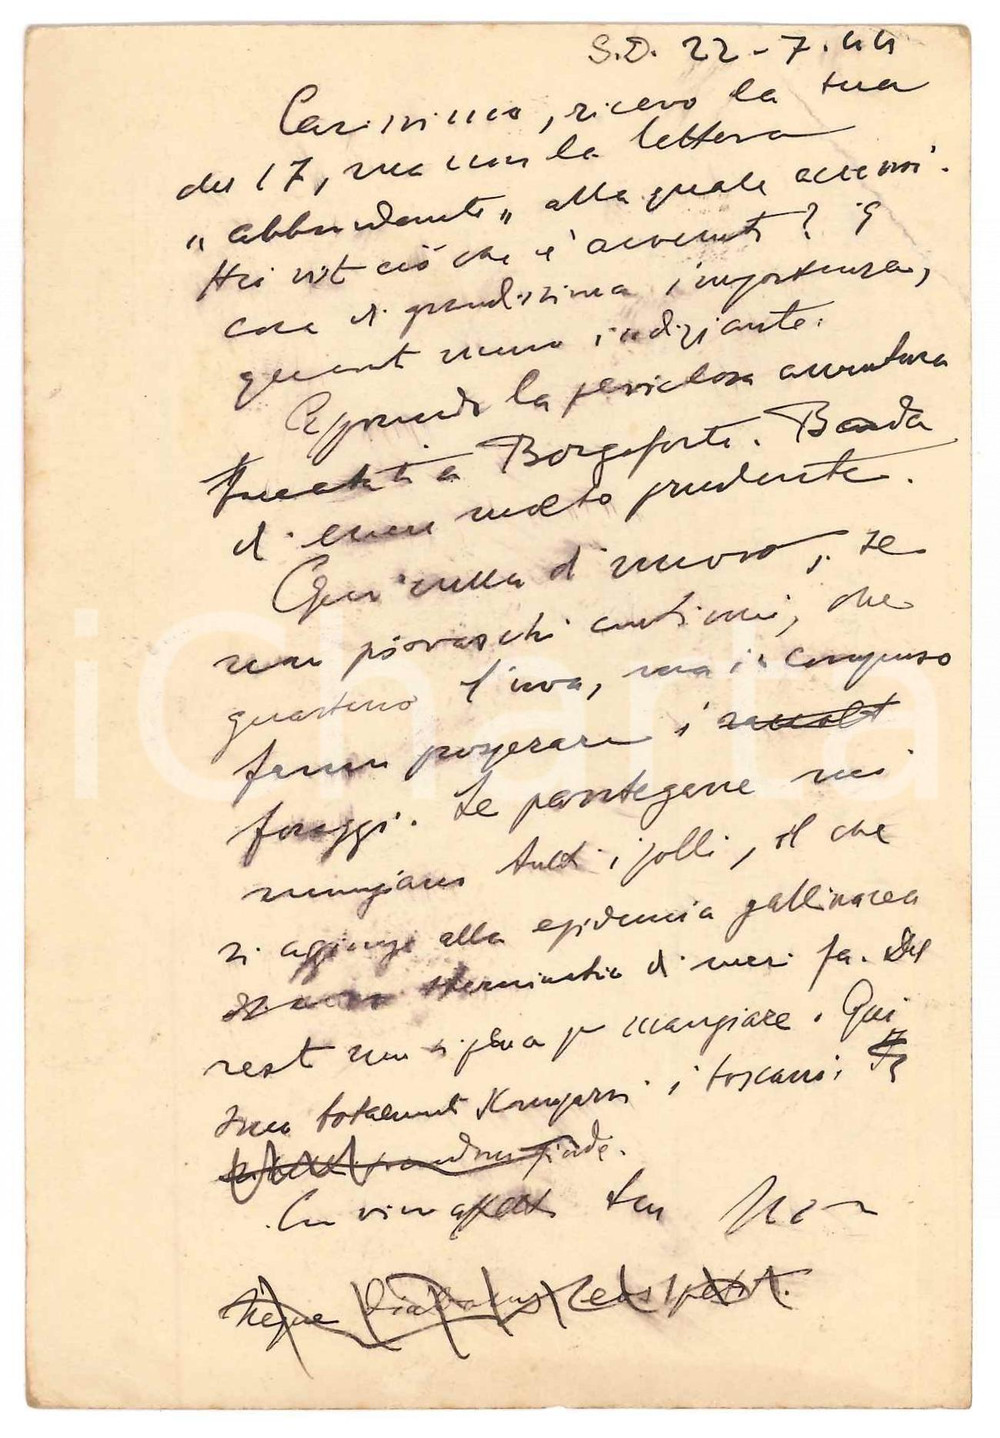 S.D. 22-7.44
Carissimo, ricevo la tua
del 17, ma non la lettera
"abbondante" alla quale accenni.
Hai vist ciò che è avvenuto? È
cosa di grandissima importanza,
quanto meno indiziante.
Apprendo la pericolosa avventura
a Borgoforte. Bada
di essere molto prudente.
Qui nulla di nuovo, se
non piovaschi continui, che
guastano l'uva, ma in compenso
fanno prosperare i raccolt
foraggi. Le pantegane mi
mangiano tutti i polli, il che
si aggiunge alla epidemia gallinacea
di mesi fa. Del
rest non si pensa per mangiare. Qui
sono totalmente scomparsi i toscani;
Con vivo affetto tuo
iCharta